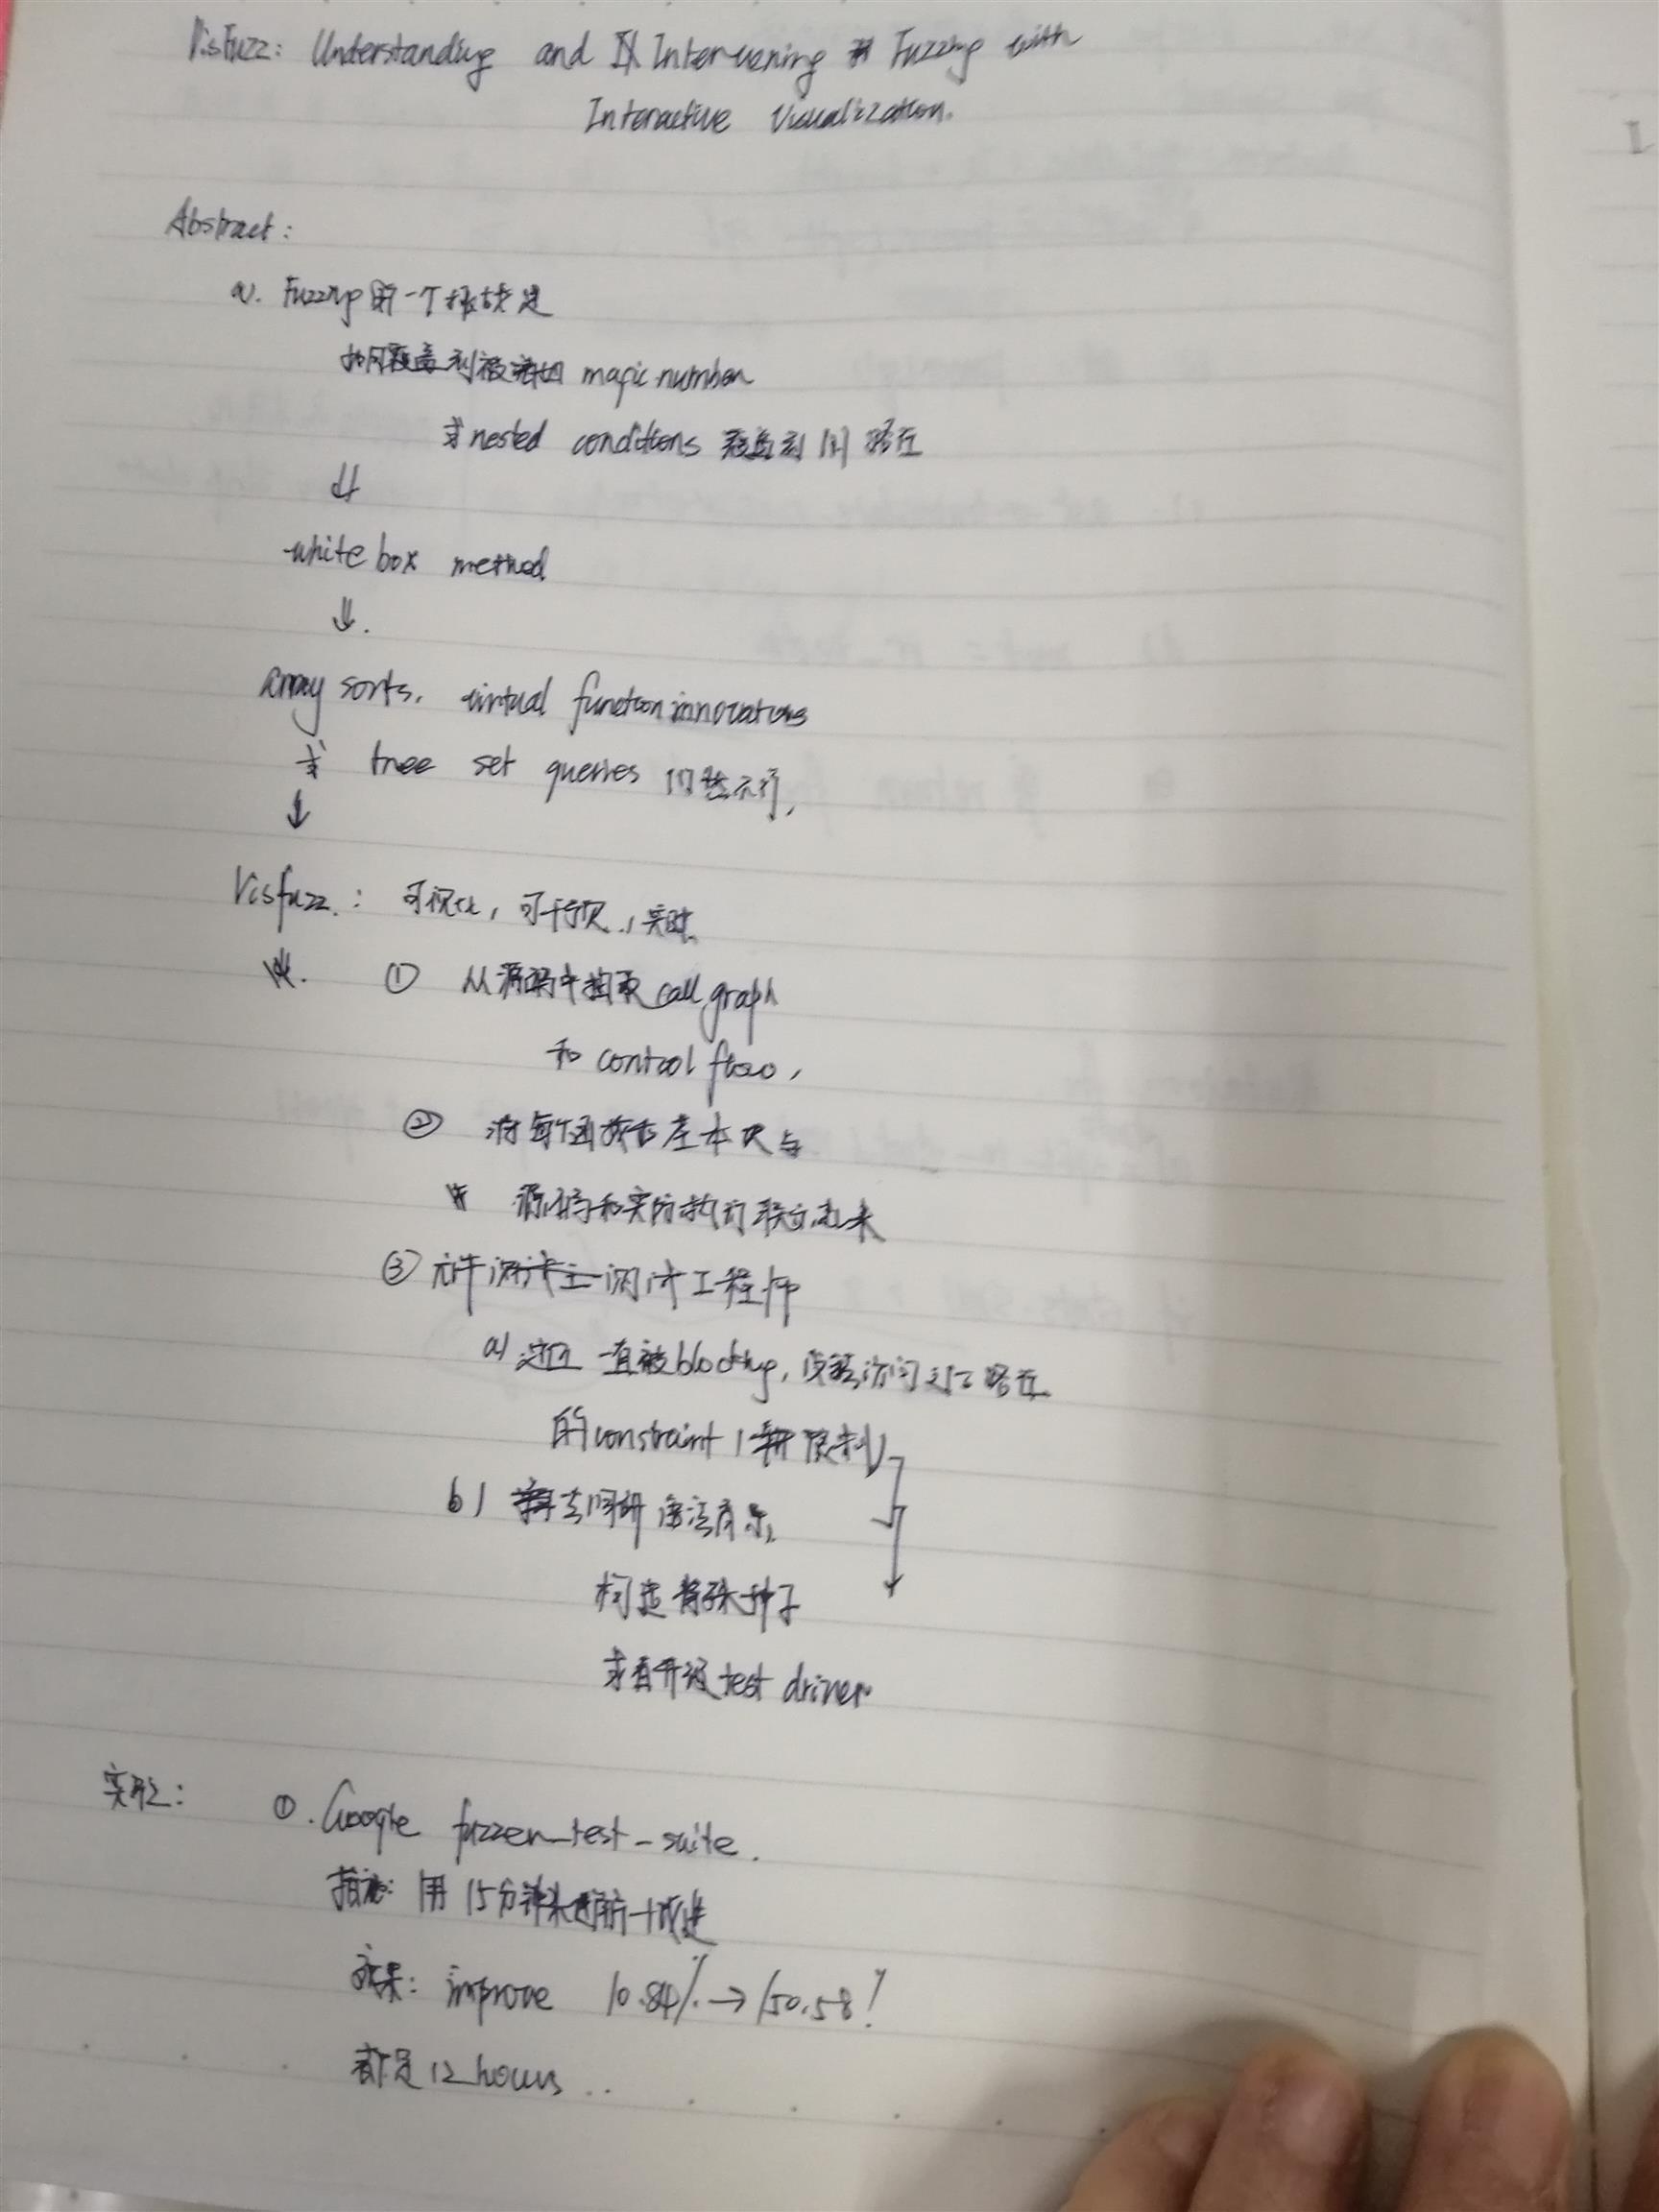 VisFuzz: Understanding and Intervening Fuzzing with
Interactive Visualization.
Abstract:
a. Fuzzing 的一个挑战是
如何覆盖到被诸如 magic number
或 nested conditions 覆盖到的路径
white box method
array sorts, virtual function innovations
或 tree set queries 的也不行,
Visfuzz: 可视化, 可干预, 实时
① 从源码中抽取 call graph
和 control flow,
② 将每个函数和基本块与
源码和实际执行联立起来
③ 允许测试工程师
a) 定位一直被 blocking, 没被访问到的路径
的 constraint 限制
b) 去调研语法
构造特殊种子
或者升级 test driver
实验:
① . Google fuzzer-test-suite.
措施: 用 15分钟来
效果: improve 10.84% → 150.58%
都是 12 hours ..